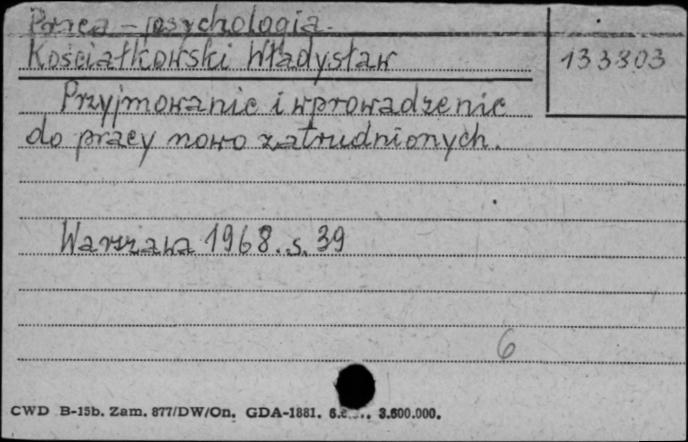 Praca - psychologia.
Kościałkowski Władysław 133803
Przyjmowanie i wprowadzenie
do pracy nowo zatrudnionych.
Warszawa 1968. s. 39
6
CWD B-15b. Zam. 877/DW/On. GDA-1881. 3.600.000.